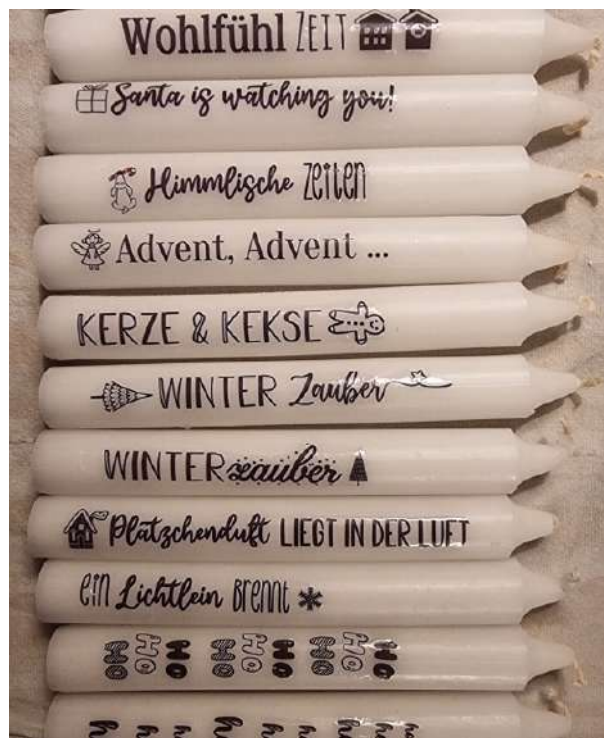 Wohlfühl ZEIT
Santa is watching you!
Himmlische ZEITEN
Advent, Advent ...
KERZE & KEKSE
WINTER Zauber
WINTERzauber
Plätzchenduft LIEGT IN DER LUFT
ein Lichtlein brennt
HO HO HO HO HO HO HO HO HO